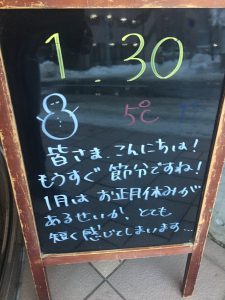 1.30
5℃
皆さま、こんにちは!
もうすぐ節分ですね!
1月はお正月休みが
あるせいか、とても
短く感じてしまいます…